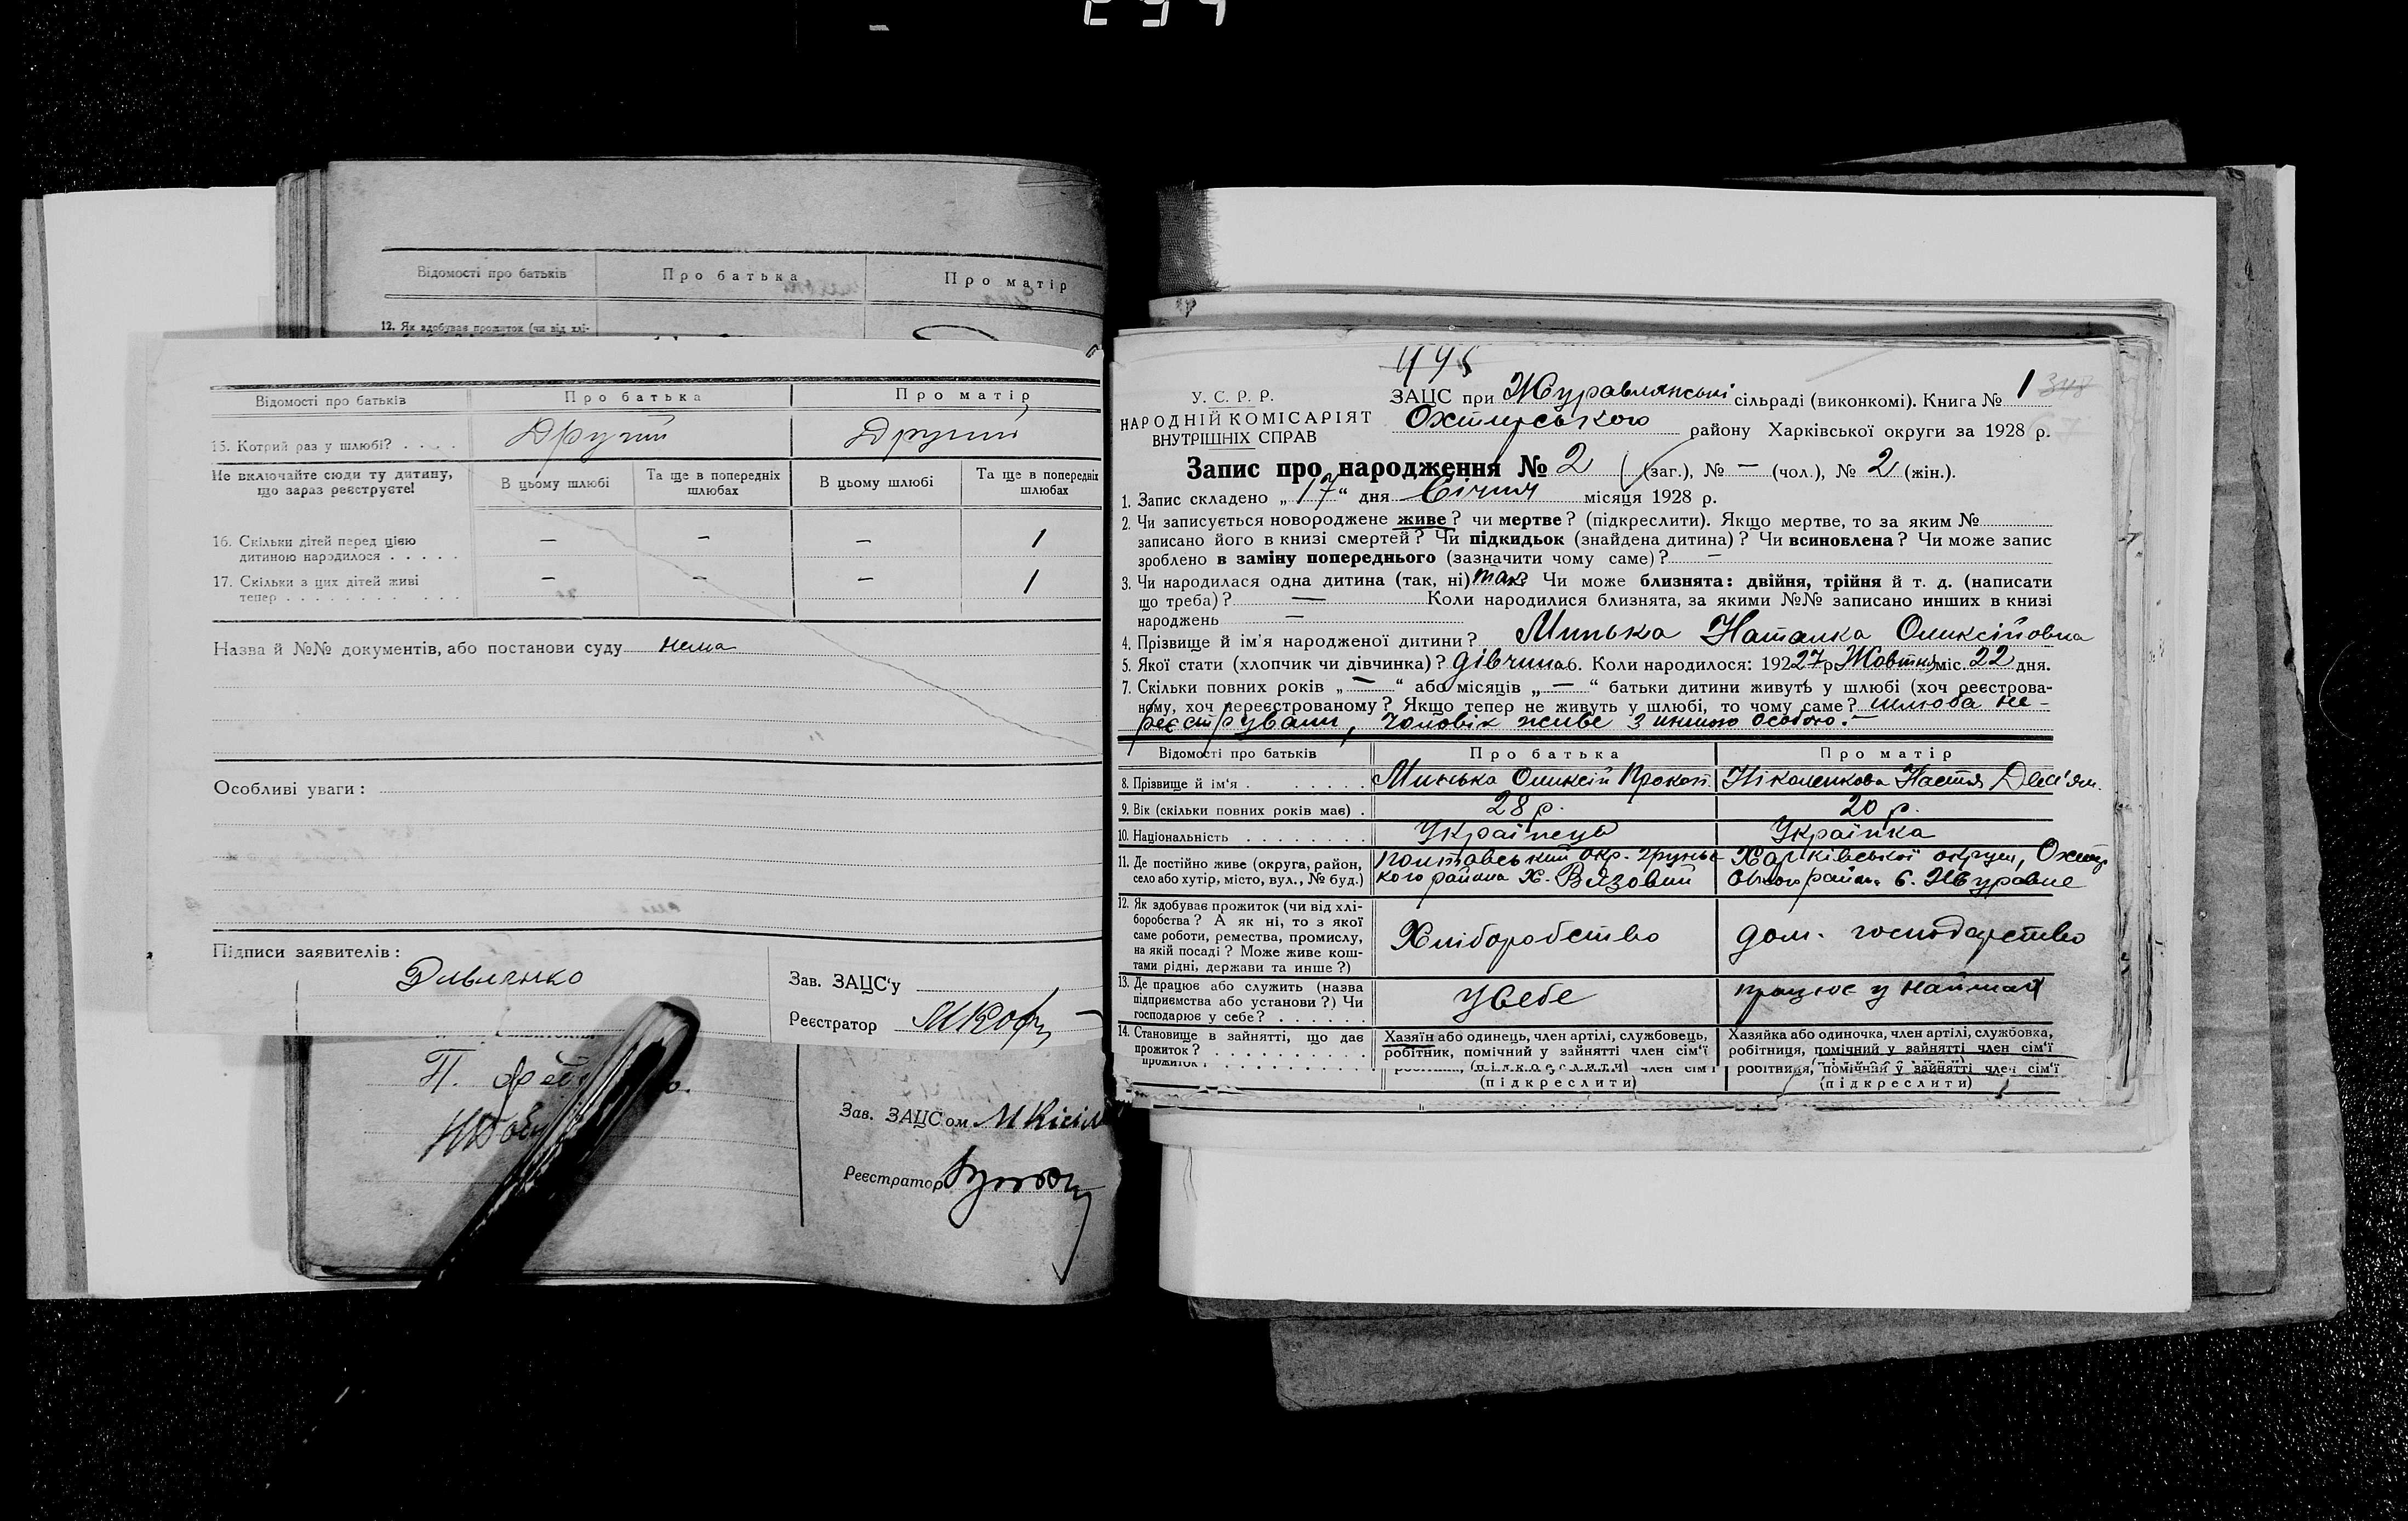 Відомості про батьків Про батька Про матір
12. Як здобуває прожиток (чи від хлі-
Відомості про батьків Про батька Про матір
15. Котрий раз у шлюбі? . . . . Другий Другий
Не включайте сюди ту дитину, що зараз реєструєте!
В цьому шлюбі Та ще в попередніх шлюбах В цьому шлюбі Та ще в попередніх шлюбах
16. Скільки дітей перед цією
дитиною народилося . . . . . — — — 1
17. Скільки з цих дітей живі
тепер . . . . . . . . . . . — — — 1
Назва й №№ документів, або постанови суду нема
Особливі уваги:
Підписи заявителів:
Зав. ЗАЦС'у
Реєстратор
П.
Зав. ЗАЦСом
Реєстратор
448
У. С. Р. Р.
НАРОДНІЙ КОМІСАРІЯТ
ВНУТРІШНІХ СПРАВ
ЗАЦС при Журавлянські сільраді (виконкомі). Книга № 1 348
Охтирського району Харківської округи за 1928 р.
Запис про народження № 2 (заг.), № — (чол.), № 2 (жін.).
1. Запис складено „17“ дня Січня місяця 1928 р.
2. Чи записується новороджене живе? чи мертве? (підкреслити). Якщо мертве, то за яким №
записано його в книзі смертей? Чи підкидьок (знайдена дитина)? Чи всиновлена? Чи може запис
зроблено в заміну попереднього (зазначити чому саме)? —
3. Чи народилася одна дитина (так, ні) так? Чи може близнята: двійня, трійня й т. д. (написати
що треба)? — Коли народилися близнята, за якими №№ записано инших в книзі
народжень —
4. Прізвище й ім'я народженої дитини? Минька Наталка Оликсійовна
5. Якої стати (хлопчик чи дівчинка)? дівчина 6. Коли народилося: 19227р Жовтня міс. 22 дня.
7. Скільки повних років „—“ або місяців „—“ батьки дитини живуть у шлюбі (хоч реєстрова-
ному, хоч нереєстрованому? Якщо тепер не живуть у шлюбі, то чому саме? шлюба не-
реєстрували, чоловік живе з иншою особою.—
Відомості про батьків Про батька Про матір
8. Прізвище й ім'я . . . . . . Минька Оликсій Прокоп. Ніколенкова Настя Дем'ян.
9. Вік (скільки повних років має) . 28 р. 20 р.
10. Національність . . . . . . . . Українець Українка
11. Де постійно живе (округа, район, Полтавський окр. Грунсь- Харківської округи, Охтир
село або хутір, місто, вул., № буд.) кого района Х. Вязовий ського район. с. Журавне
12. Як здобуває прожиток (чи від хлі-
боробства? А як ні, то з якої
саме роботи, ремества, промислу, Хліборобство дом. господарство
на якій посаді? Може живе кош-
тами рідні, держави та инше?)
13. Де працює або служить (назва
підприємства або установи?) Чи у себе працює у наймах
господарює у себе? . . . . . .
14. Становище в зайнятті, що дає Хазяїн або одинець, член артілі, службовець, Хазяйка або одиночка, член артілі, службовка,
прожиток? . . . . . . . . . . робітник, помічний у зайнятті член сім'ї робітниця, помічний у зайнятті член сім'ї
(підкреслити) робітниця, помічний у зайнятті член сім'ї
(підкреслити) (підкреслити)